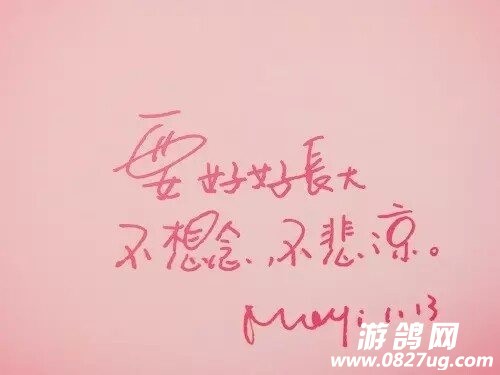 要好好長大
不想念、不悲凉。
游鸽网
www.0827ug.com